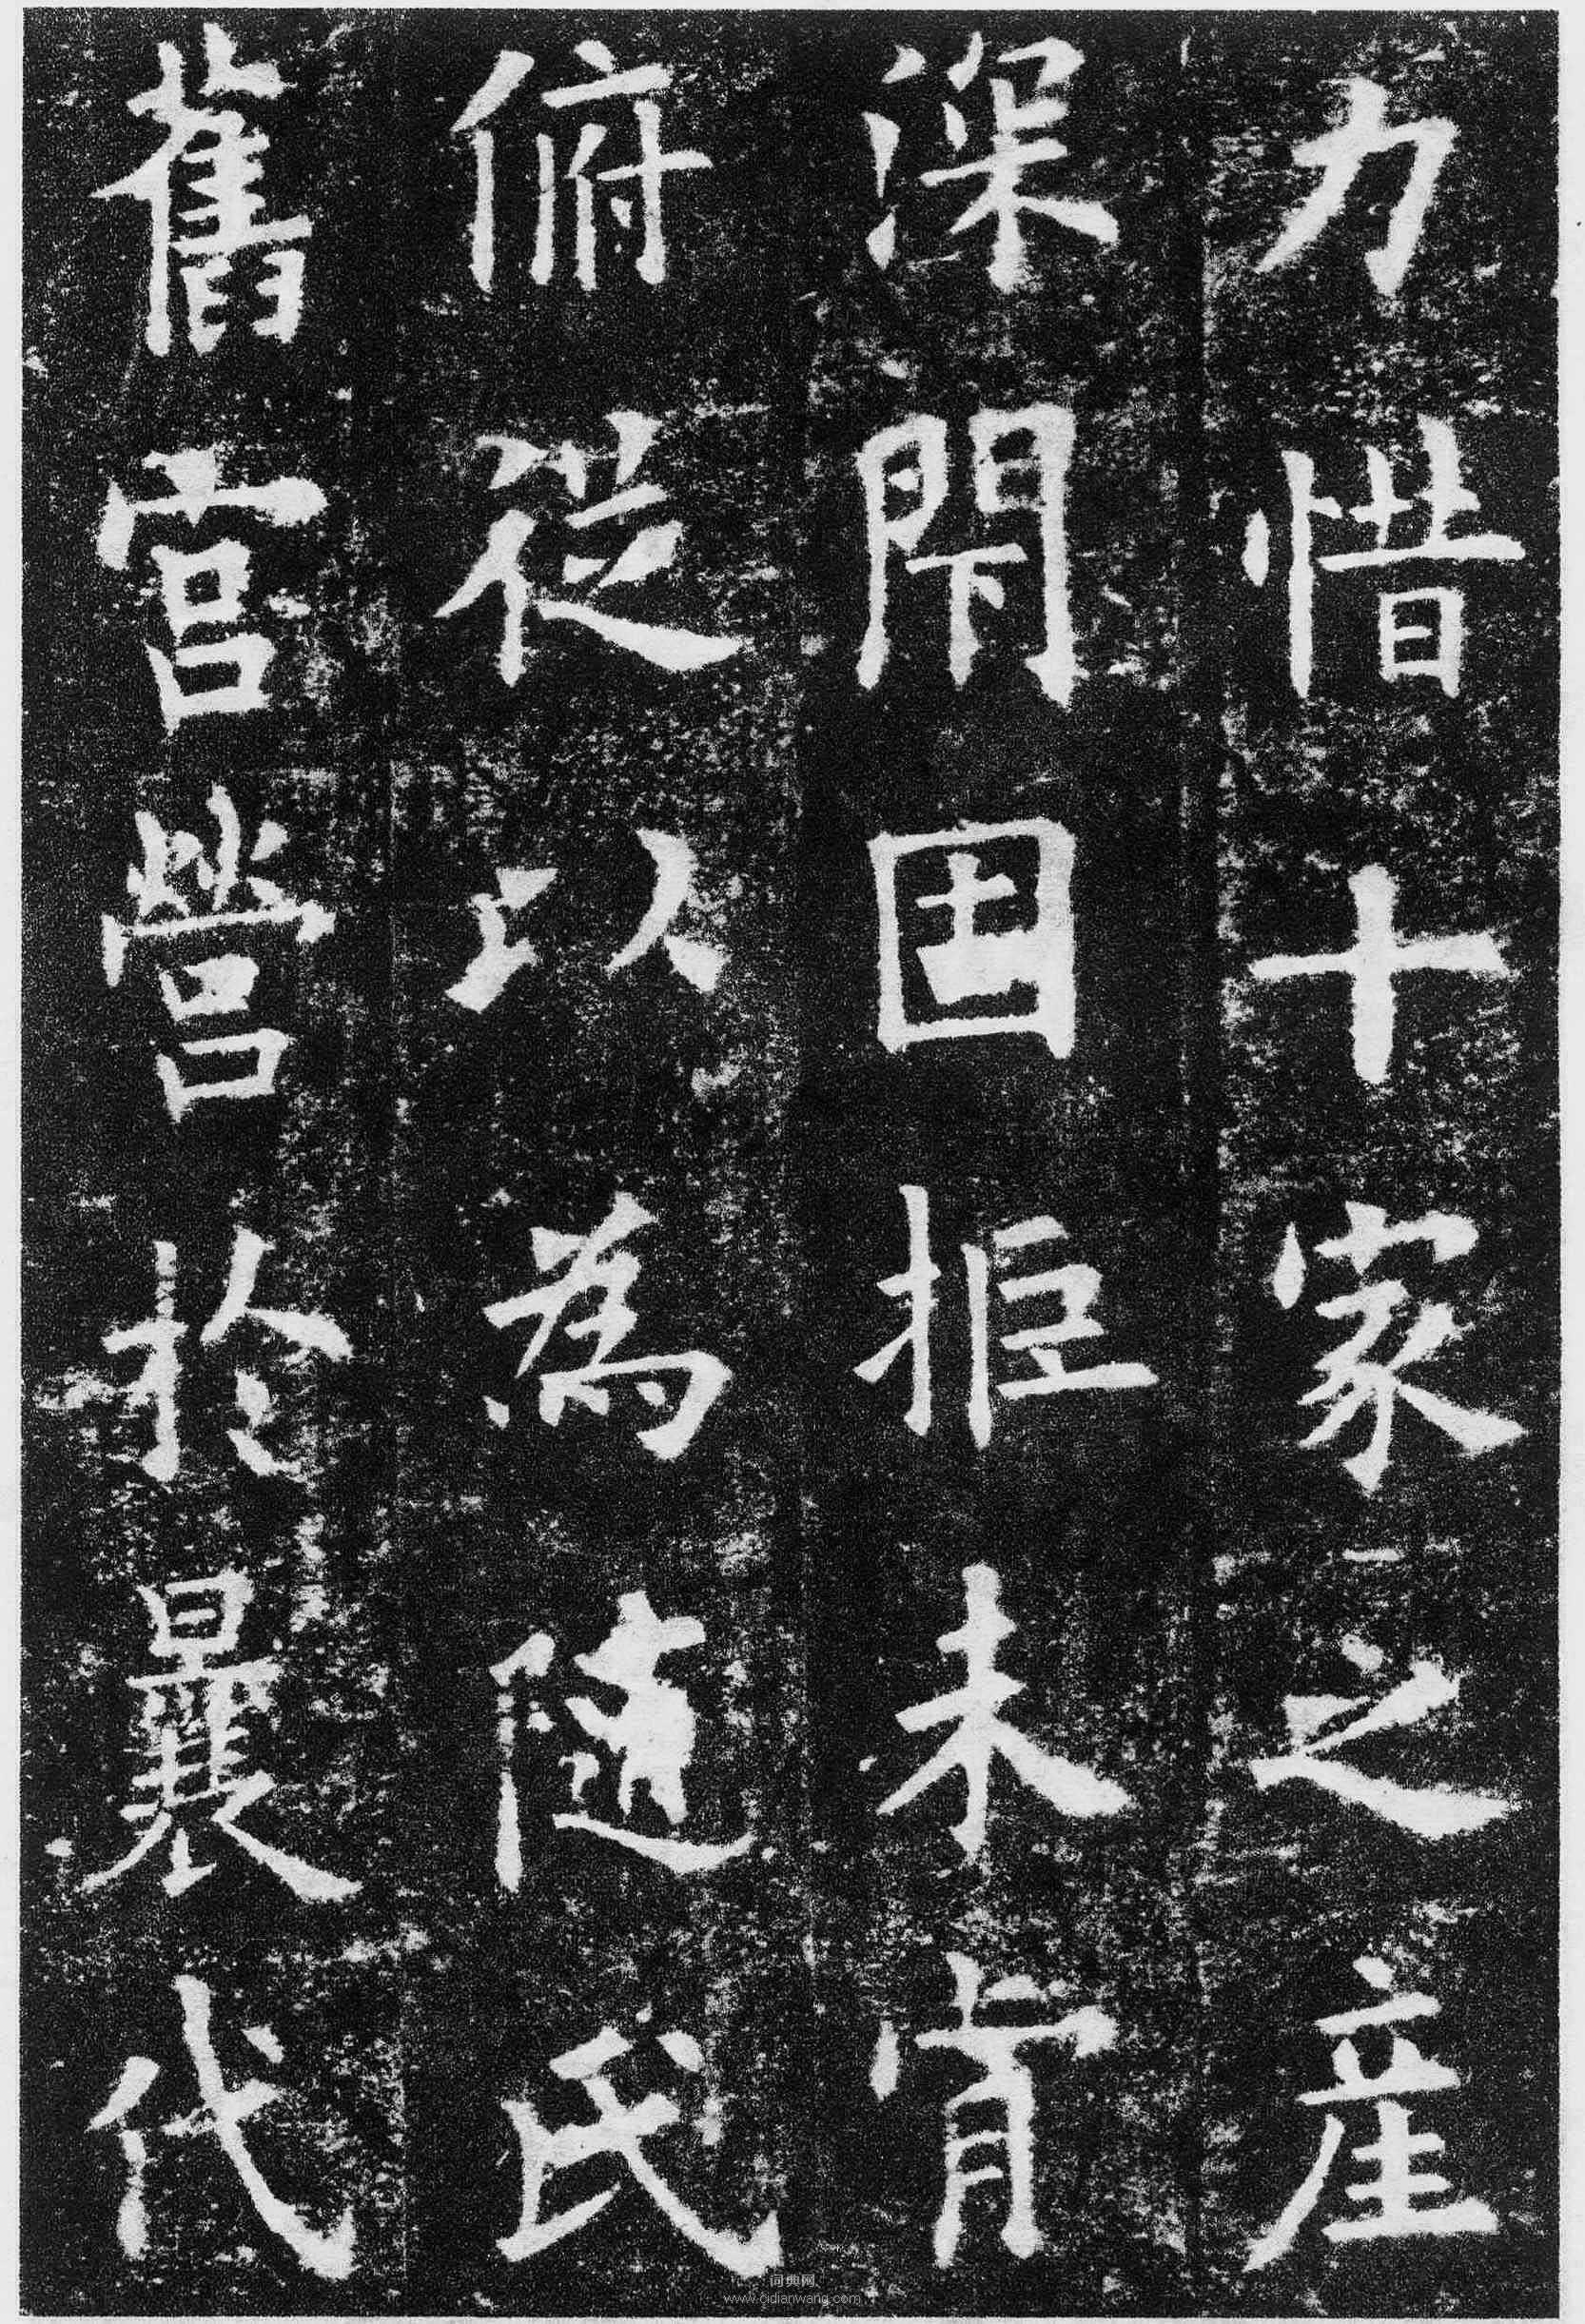 力惜十家之産
深閇固拒未肯
俯従以為随氏
舊宮營於曩代
词典网
www.cidianwang.com